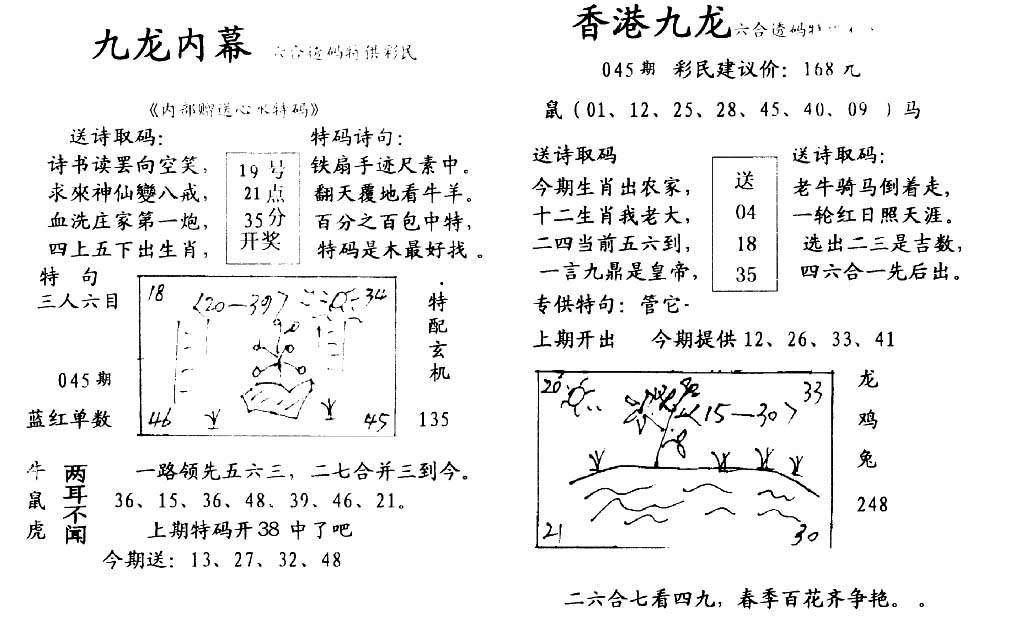 九龙内幕 六合透码特供彩民
《内部赠送心水特码》
送诗取码：
诗书读罢向空笑，
求來神仙變八戒，
血洗庄家第一炮，
四上五下出生肖，
19 号
21 点
35 分
开奖
特码诗句：
铁扇手迹尺素中。
翻天覆地看牛羊。
百分之百包中特，
特码是木最好找。
特 句
三人六目
045 期
蓝红单数
18
〈20—39〉
34
46
45
特
配
玄
机
135
牛
鼠
虎
两耳不闻
一路领先五六三，二七合并三到今。
36、15、36、48、39、46、21。
上期特码开38 中了吧
今期送：13、27、32、48
香港九龙 六合透码特
045 期 彩民建议价：168 元
鼠（01、12、25、28、45、40、09 ）马
送诗取码
今期生肖出农家，
十二生肖我老大，
二四当前五六到，
一言九鼎是皇帝，
送
04
18
35
送诗取码：
老牛骑马倒着走，
一轮红日照天涯。
选出二三是吉数，
四六合一先后出。
专供特句：管它-
上期开出 今期提供 12、26、33、41
20
33
〈15—30〉
21
30
龙
鸡
兔
248
二六合七看四九，春季百花齐争艳。。